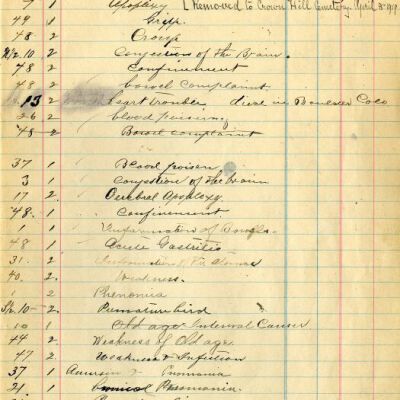 7 1 Apoplexy [Removed to Crown Hill Cemetery April
49 1 Gripp.
48 2 Croup
10 2 Congestion of the Brain.
48 2 Confinement
48 2 bowel Complaint
13 2 heart trouble died in Denver Colo
26 2 blood poisoning
48 2 Bowel complaint
37 1 Blood poison
3 1 Congestion of the brain
17 2 Cerebral Apoplexy.
48. 1 Confinement
1 1 Inflammation of Bowels.
48 1 Acute Gastritis
31. 2 of the
40. 2. Weakness.
1 2 Phenomia
10 2. Premature bird
10 1 Old age Internal Cancer
44 2. Weakness of Old age.
47 2 Weakness & Infection
37 1 &
21. 1 Pneumonia.